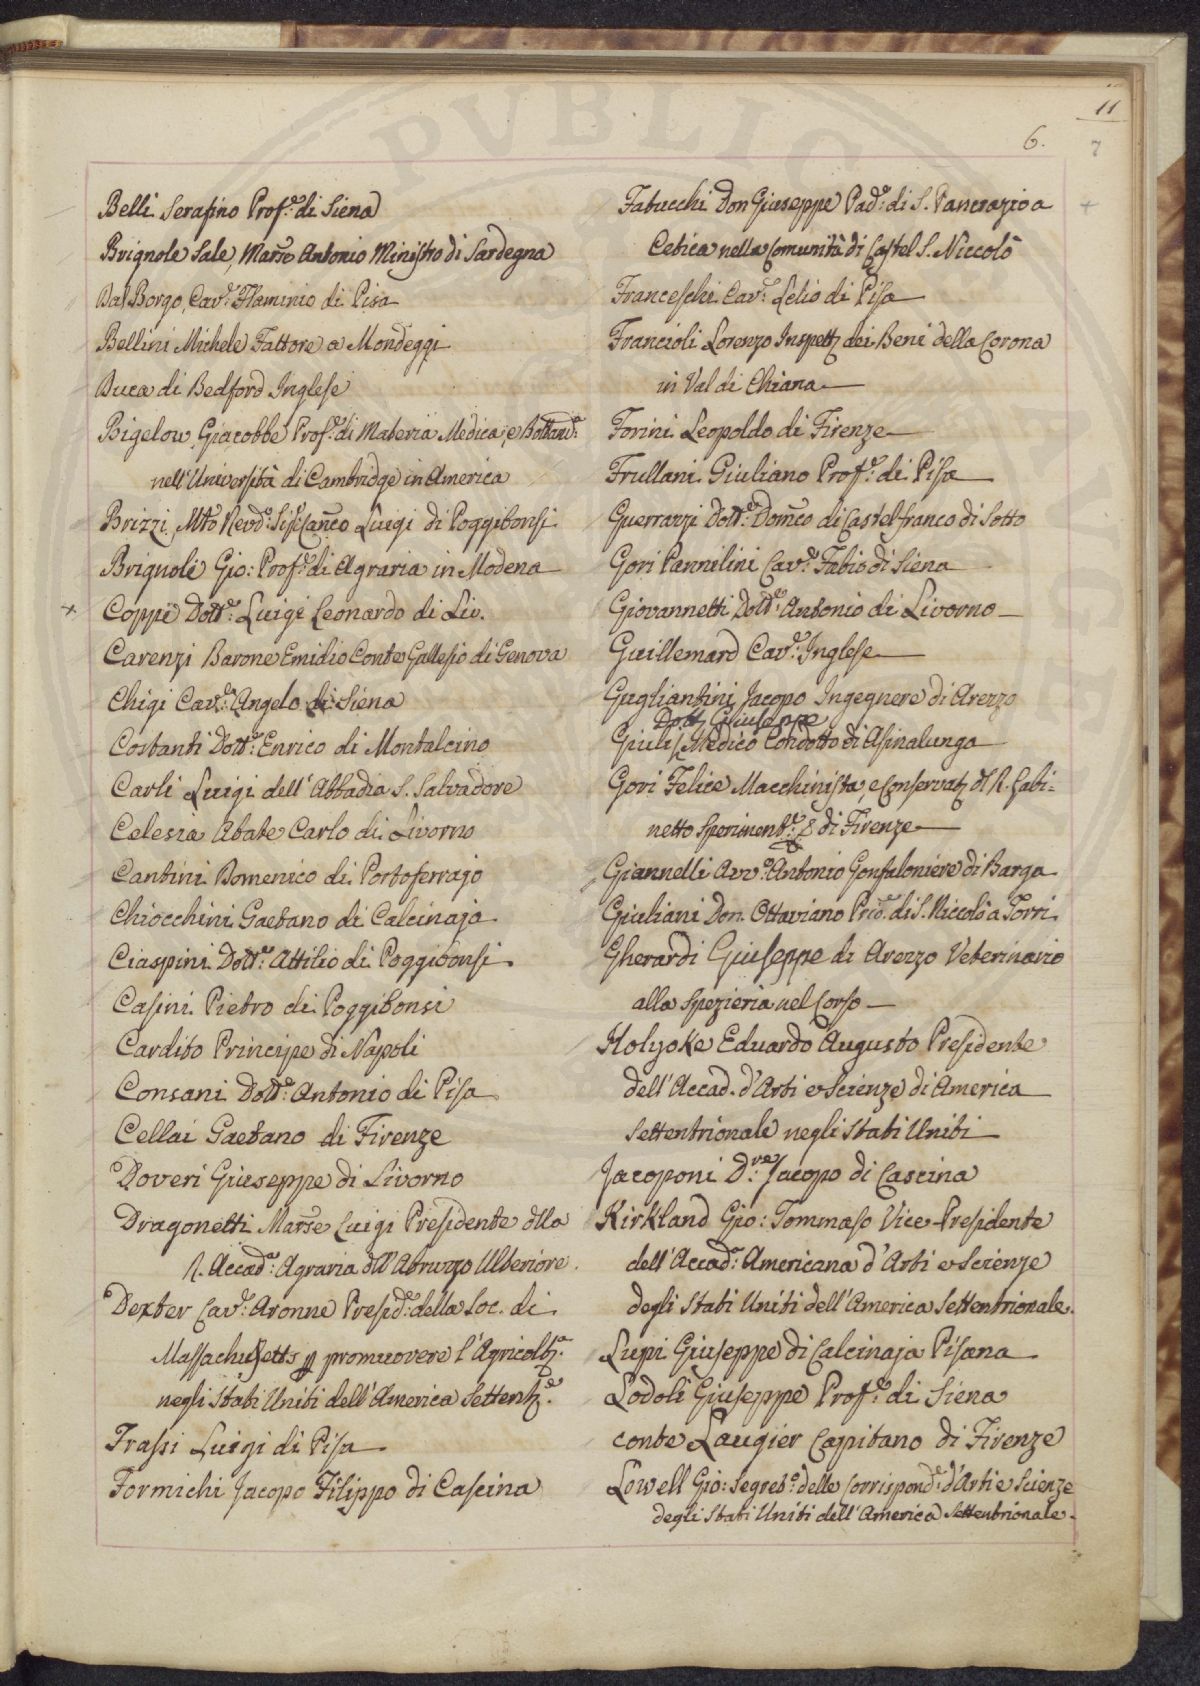 11
6.
7
Belli Serafino Prof.e di Siena
Brignole Sale, Marse Antonio Ministro di Sardegna
Dal Borgo, Cav.e Flaminio di Pisa
Bellini Michele Fattore a Mondeggi
Duca di Bedford Inglese
Bigelow Giacobbe Prof.e di Materia Medica, e Bottan.a
nell'Università di Cambridge in America
Brizzi, Mto Revd.o Sig.e Canco Luigi di Poggibonsi
Brignoli Gio: Prof.e di Agraria in Modena
+ Coppi Dott.e Luigi Leonardo di Liv.
Carenzi Barone Emidio Conte Gallesio di Genova
Chigi Cav.e Angelo di Siena
Costanti Dott.e Enrico di Montalcino
Carli Luigi dell'Abbadia S. Salvadore
Celesia Abate Carlo di Livorno
Cantini Domenico di Portoferrajo
Chiocchini Gaetano di Calcinaja
Ciaspini Dott.e Attilio di Poggibonsi
Casini Pietro di Poggibonsi
Cardito Principe di Napoli
Consani Dott.e Antonio di Pisa
Cellai Gaetano di Firenze
Doveri Giuseppe di Livorno
Dragonetti Marse Luigi Presidente dlla
R. Accad.a Agraria dll'Abruzzo Ulteriore.
Dexter Cav.e Aronne Presid.e della Soc. di
Massachusetts p promuovere l'Agricolt.a
negli Stati Uniti dell'America Settent.e
Frassi Luigi di Pisa
Formichi Jacopo Filippo di Cascina
Fabucchi Don Giuseppe Pad.e di S. Pancrazio a +
Cetica nella Comunità di Castel S. Niccolò
Franceschi Cav.e Lelio di Pisa
Francioli Lorenzo Inspett.e dei Beni della Corona
in Val di Chiana
Forini Leopoldo di Firenze
Frullani Giuliano Prof.e di Pisa
Guerrazzi Dott.e Domco di Castelfranco di Sotto
Gori Pannilini Cav.e Fabio di Siena
Giovannetti Dott.e Antonio di Livorno
Guillemard Cav.e Inglese
Gugliantini Jacopo Ingegnere di Arezzo
Dott. Giuseppe
Giulj Medico Condotto di Asinalunga
Gori Felice Macchinista, e Conservat.e dl R. Gabi=
netto Speriment.e di Firenze
Giannelli Avv.o Antonio Gonfaloniere di Barga
Giuliani Don. Ottaviano Prio.e di S. Niccolò a Torri
Gherardi Giuseppe di Arezzo Veterinario
alla Spezieria nel Corso
Holyoke Eduardo Augusto Presidente
dell'Accad. d'Arti e Scienze di America
Settentrionale negli Stati Uniti
Jacoponi D.re Jacopo di Cascina
Kirkland Gio: Tommaso Vice-Presidente
dell'Accad.a Americana d'Arti e Scienze
degli Stati Uniti dell'America Settentrionale.
Lupi Giuseppe di Calcinaja Pisana
Lodoli Giuseppe Prof.e di Siena
Conte Laugier Capitano di Firenze
Lowell Gio: Segret.o delle Corrispond.e d'Arti e Scienze
degli Stati Uniti dell'America Settentrionale.
PUBLIC